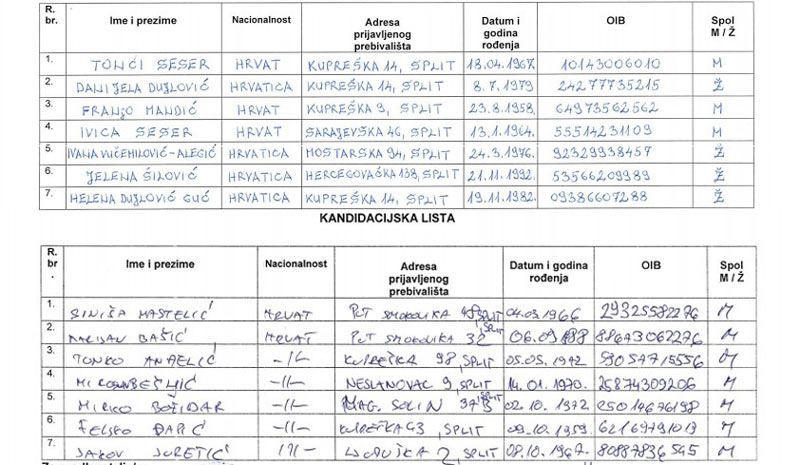 R. br. Ime i prezime Nacionalnost Adresa prijavljenog prebivališta Datum i godina rođenja OIB Spol M / Ž
1. TONĆI SESER HRVAT KUPREŠKA 14, SPLIT 18.04.1967. 10143006010 M
2. DANIJELA DUJLOVIĆ HRVATICA KUPREŠKA 14, SPLIT 8.7.1979 24277735215 Ž
3. FRANJO MANDIĆ HRVAT KUPREŠKA 9, SPLIT 23.8.1958. 64973562562 M
4. IVICA SESER HRVAT SARAJEVSKA 46, SPLIT 13.1.1964. 55514231109 M
5. IVANA VUČEMILOVIĆ-ALEGIĆ HRVATICA MOSTARSKA 94, SPLIT 24.3.1976. 92329938457 Ž
6. JELENA ŠILOVIĆ HRVATICA HERCEGOVAČKA 138, SPLIT 21.11.1992. 53566209989 Ž
7. HELENA DUJLOVIĆ GUĆ HRVATICA KUPREŠKA 14, SPLIT 19.11.1982. 09386607288 Ž
KANDIDACIJSKA LISTA
R. br. Ime i prezime Nacionalnost Adresa prijavljenog prebivališta Datum i godina rođenja OIB Spol M / Ž
1. SINIŠA MASTELIĆ HRVAT PUT SMOKOVIKA SPLIT 04.03.1966 29325582276 M
2. BAŠIĆ HRVAT PUT SMOKOVIKA 32, SPLIT M
3. TONKO ANĐELIĆ -II- KUPREŠKA 98, SPLIT 05.05.1942 M
4. -II- NESLANOVAC 9, SPLIT 14.01.1970. 25874309206 M
5. MIRKO BOŽIDAR -II- MAG. SOLIN SPLIT 02.10.1972. M
6. -II- KUPREŠKA 63, SPLIT 62169791013 M
7. JAKOV JURETIĆ -II- 2, SPLIT 08.10.1967. 80887836545 M